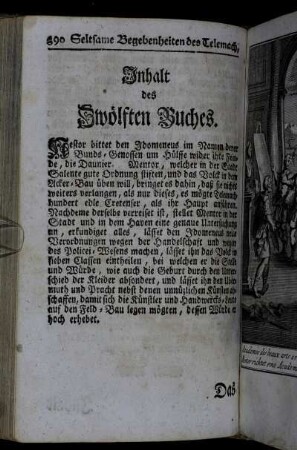 390 Seltsame Begebenheiten des Telemach,
Inhalt
des
Zwölften Buches.
Nestor bittet den Idomeneus im Namen derer
Bunds-Genossen um Hülffe wider ihre Fein-
de, die Daunier. Mentor, welcher in der Stadt
Salente gute Ordnung stifften, und das Volck in dem
Acker-Bau üben will, bringet es dahin, daß sie nichts
weiters verlangen, als nur dieses, es mögte Telemach
hundert edle Cretenser, als ihr Haupt anführen.
Nachdeme derselbe verreiset ist, stellet Mentor in der
Stadt und in dem Haven eine genaue Untersuchung
an, erkundiget alles, lässet den Idomeneus neue
Verordnungen wegen der Handelschafft und wegen
des Policei-Wesens machen, lässet ihn das Volck in
sieben Classen eintheilen, bei welchen er die Stell
und Würde, wie auch die Geburt durch den Unter-
schied der Kleider absondert, und lässet ihn den Uber-
muth und Pracht nebst denen unnützlichen Künsten ab-
schaffen, damit sich die Künstler und Handwercks-Leute
auf den Feld-Bau legen mögten, dessen Würde er
hoch erhebet.
Das